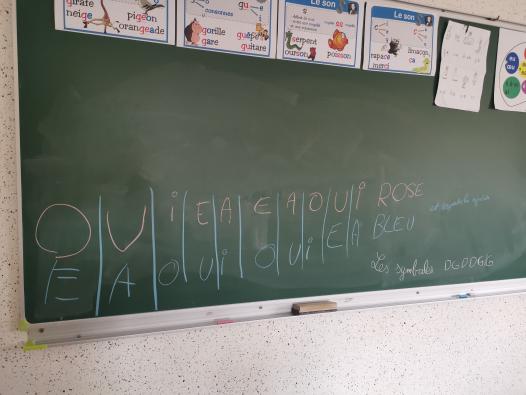 girafe
neige
pigeon
orangeade
consonnes
gu
gorille
gare
guêpe
guitare
Le son
serpent
ourson
poisson
Le son
rapace
merci
limaçon
ça
O U i E A E A O U i ROSE
E A O U i O U i E A BLEU
Les symboles DGDDGG